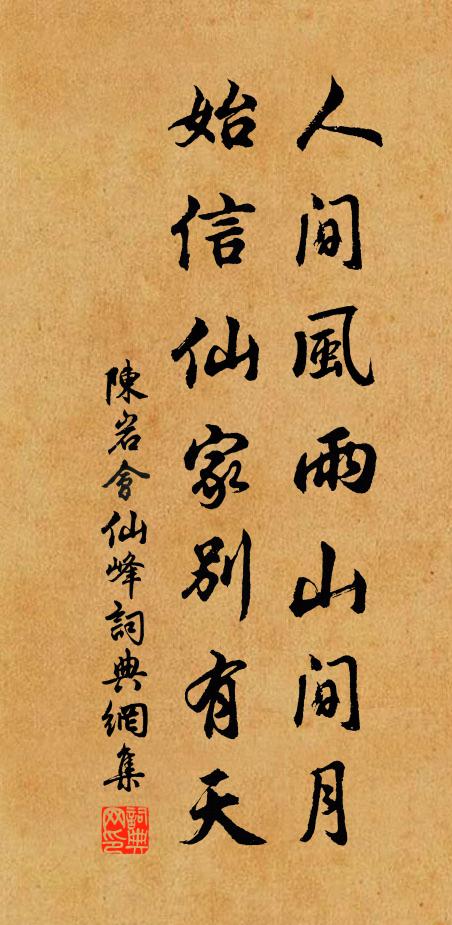 人間風雨山間月
始信仙家別有天
陳岩會仙峰詞典網集
詞典网印